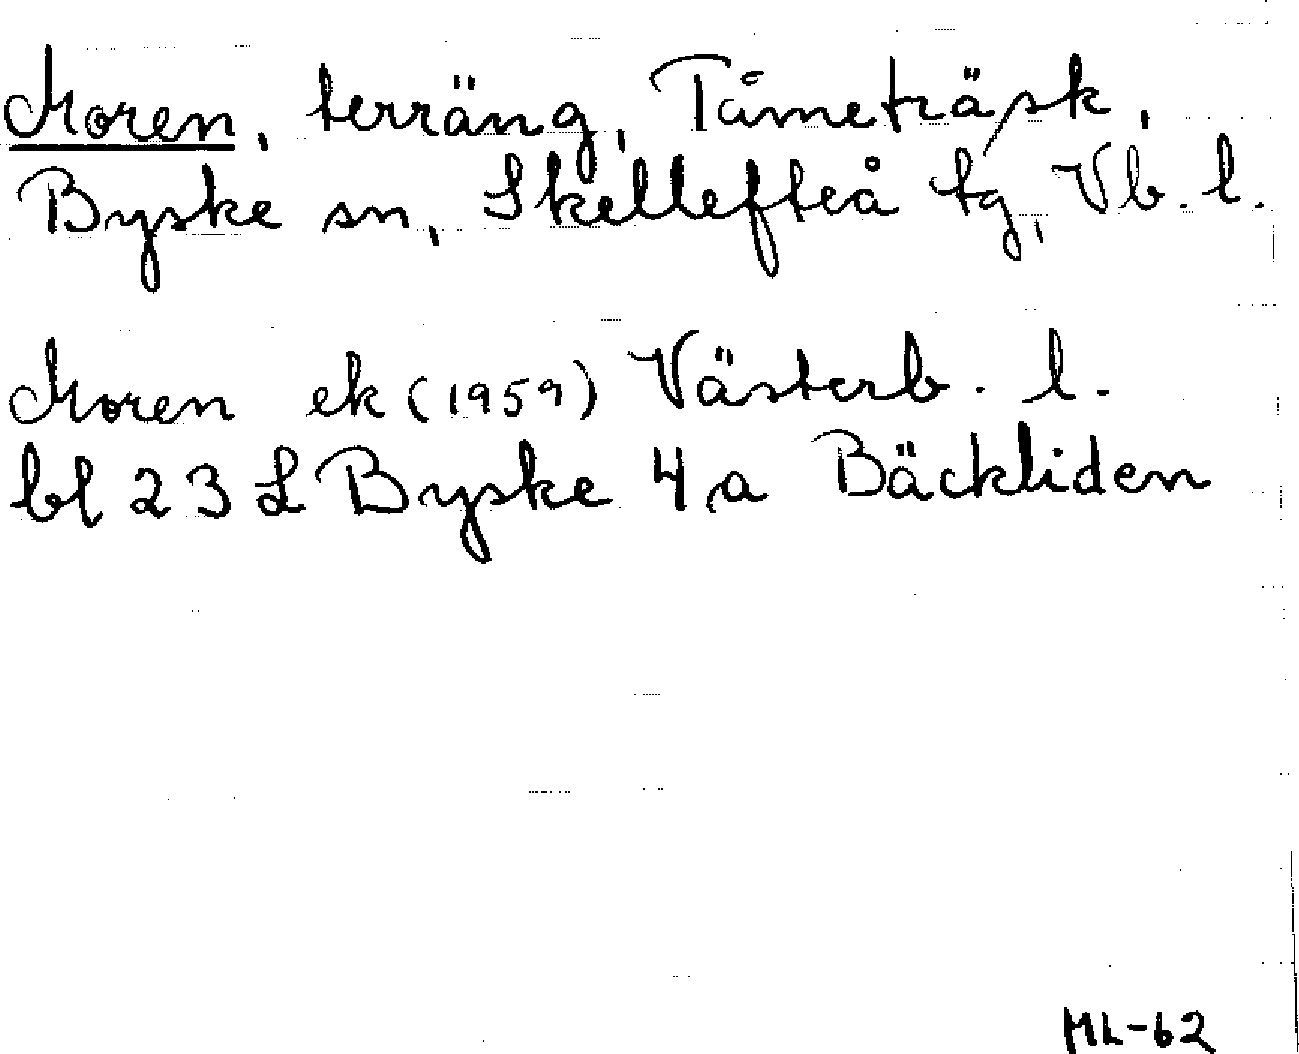 Moren, terräng, Tåmeträsk,
Byske sn, Skellefteå tg, Vb. l.
Moren ek (1959) Västerb. l.
bl 23 L Byske 4 a Bäckliden
ML-62